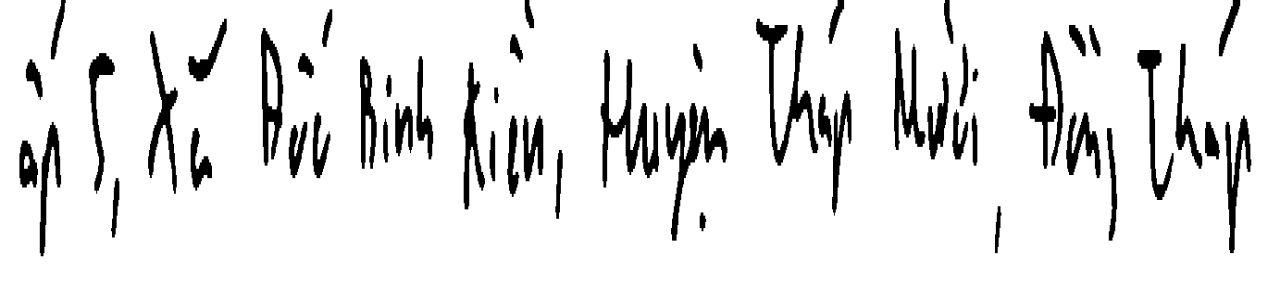 ấp 5, Xã Đốc Binh Kiều, Huyện Tháp Mười, Đồng Tháp